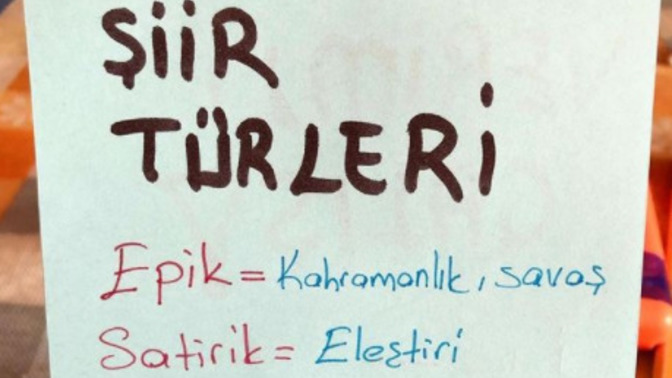 ŞİİR
TÜRLERİ
Epik = Kahramanlık, savaş
Satirik = Eleştiri